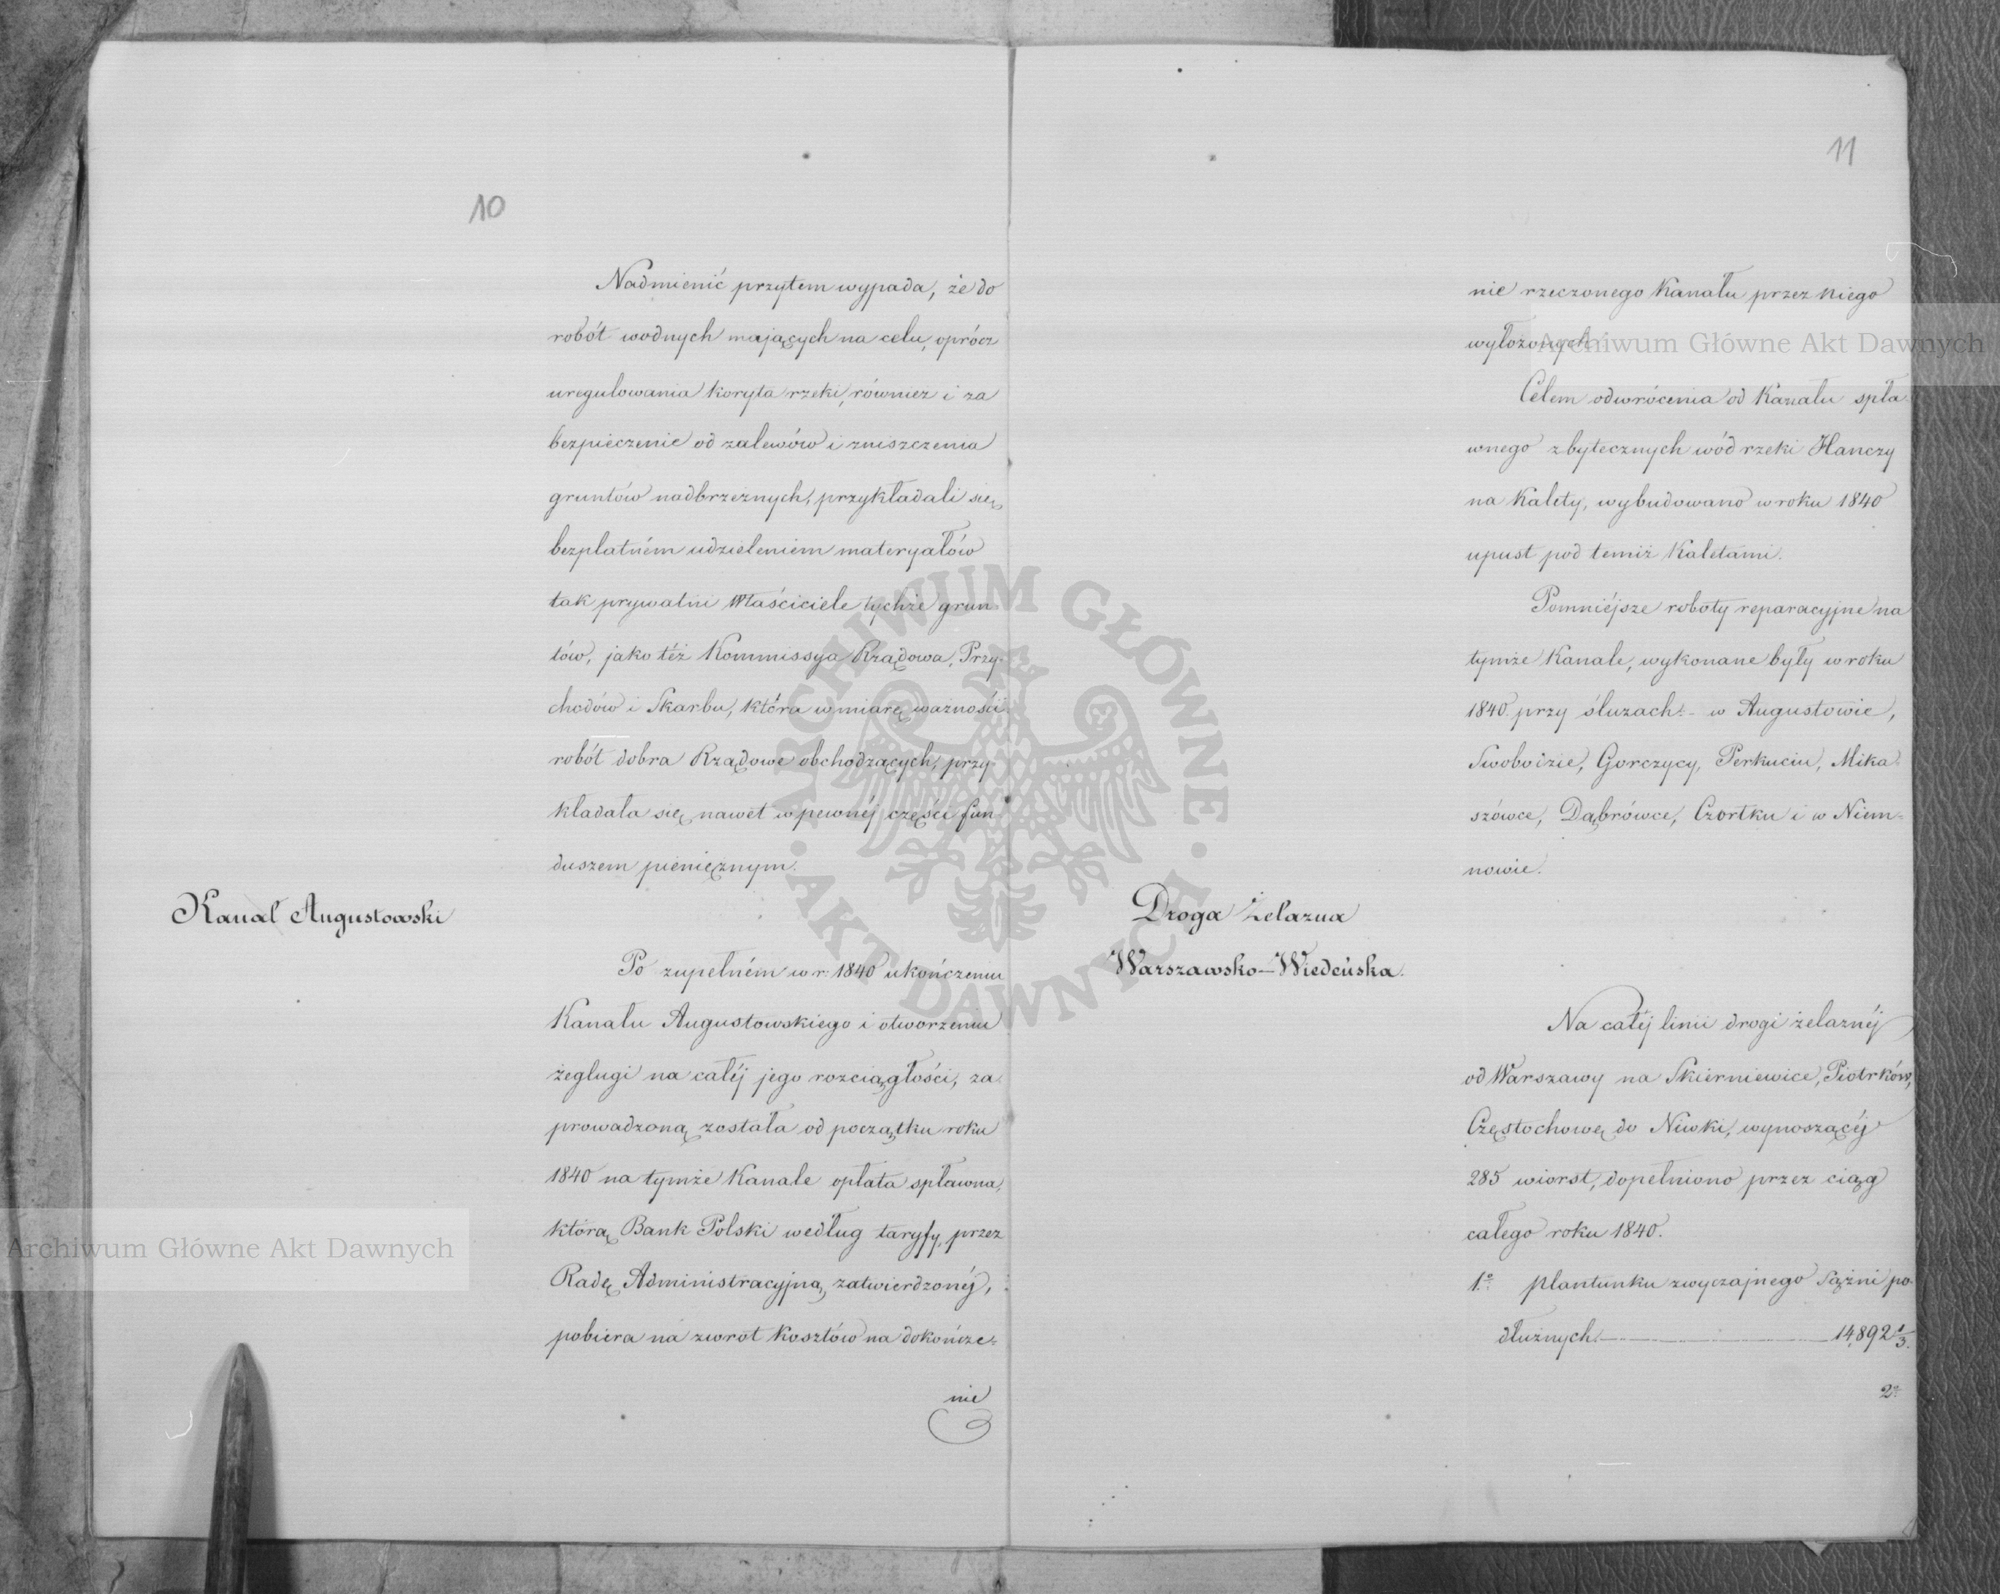 10
Nadmienić przytem wypada, że do
robót wodnych mających na celu, oprócz
uregulowania koryta rzeki, również i za
bezpieczenie od zalewów i zniszczenia
gruntów nadbrzeżnych, przykładali się
bezpłatném udzieleniem materyałów
tak prywatni Właściciele tychże grun
tów, jako téż Kommissya Rządowa, Przy-
chodów i Skarbu, która w miarę ważności
robót dobra Rządowe obchodzących, przy-
kładała się nawet w pewnéj części fun
duszem pieniężnym.
Kanał Augustowski
Po zupełném w r: 1840 ukończeniu
Kanału Augustowskiego i otworzeniu
żeglugi na całéj jego rozciągłości, za-
prowadzoną została od początku roku
1840 na tymże Kanale opłata spławna,
którą Bank Polski według taryfy, przez
Radę Administracyjną zatwierdzonéj,
pobiera na zwrot kosztów na dokończe-
nie
11
nie rzeczonego Kanału przez niego
wyłożonych.
Celem odwrócenia od Kanału spła-
wnego zbytecznych wód rzeki Hanczy
na Kalety, wybudowano w roku 1840
upust pod temiż Kaletami.
Pomniéjsze roboty reparacyjne na
tymże Kanale, wykonane były w roku
1840. przy śluzach: w Augustowie,
Swobodzie, Gorczycy, Perkuciu, Mika-
szówce, Dąbrówce, Czortku i w Niem-
nowie.
Droga Żelazna
Warszawsko-Wiedeńska.
Na całéj linii drogi żelaznéj
od Warszawy na Skierniewice, Piotrków,
Częstochowę do Niwki, wynoszącéj
285 wiorst, dopełniono przez ciąg
całego roku 1840.
1.° Plantunku zwyczajnego Sążni po-
dłużnych 14,892 1/3.
2.°
Archiwum Główne Akt Dawnych
Archiwum Główne Akt Dawnych
ARCHIWUM GŁÓWNE · AKT DAWNYCH ·